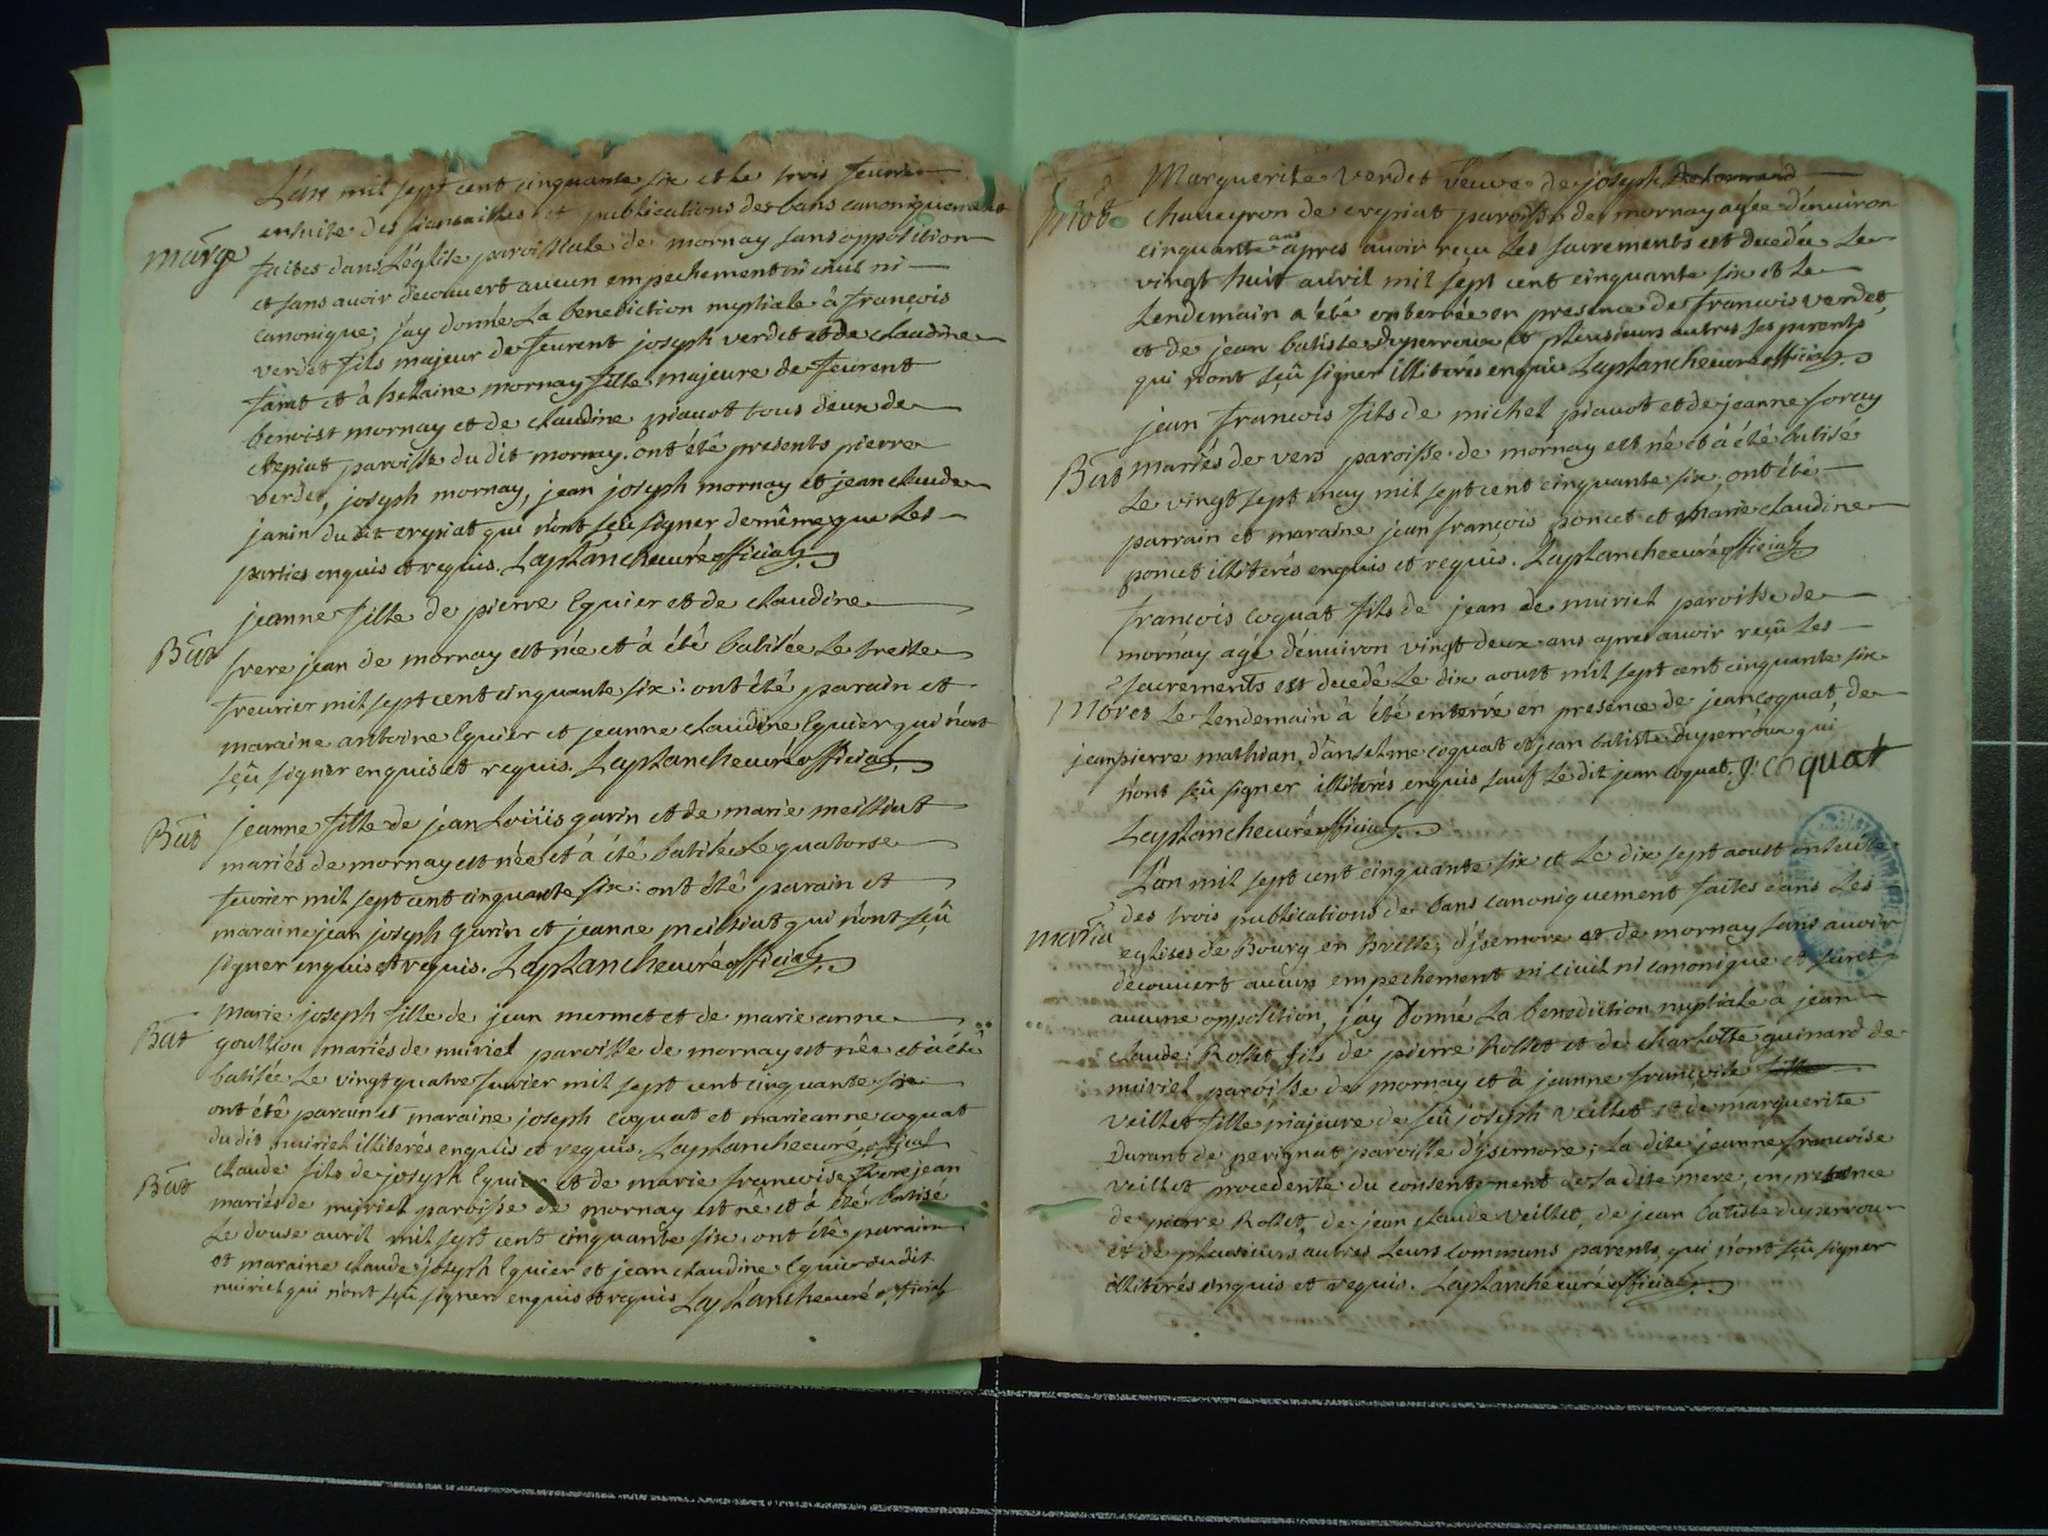 L'an mil sept cent cinquante six et le trois feuvrier
ensuite des fiensailles et publications des bans canoniquement
marge
faites dans L'église paroissiale de mornay sans opposition
et sans avoir decouvert aucun empechement ni civil ni
canonique; j'ay donné La benediction nuptiale à françois
verdet fils majeur de feurent joseph verdet et de claudine
tarat et à helaine mornay fille majeure de feurent
benoist mornay et de claudine piavot tous deux de
crepiat paroisse du dit mornay. ont été presents pierre
verdet, joseph mornay, jean joseph mornay et jean claude
janin du dit crepiat qui n'ont sçû signer de même que les
parties enquis et requis. Laplanche curé official
jeanne fille de pierre Equier et de claudine
Bat
frere jean de mornay est née et à été batisée Le treise
freuvrier mil sept cent cinquante six: ont été parain et
maraine antoine Equier et jeanne claudine Equier qui n'ont
sçû signer enquis et requis. Laplanche curé official
Bat
jeanne fille de jean Loüis garin et de marie meilliat
mariés de mornay est née et à été batisée Le quatorse
feuvrier mil sept cent cinquante six: ont été parain et
maraine jean joseph garin et jeanne meilliat qui n'ont sçû
signer enquis et requis. Laplanche curé official
marie joseph fille de jean mermet et de marie anne
Bat
goultiou mariés de muriel paroisse de mornay est née et à été
batisée Le vingt quatre fuvrier mil sept cent cinquante six
ont été parain et maraine joseph coquat et marie anne coquat
du dit muriel illiterés enquis et requis. Laplanche curé official
claude fils de joseph Equier et de marie francoise frere jean
Bat
mariés de muriel paroisse de mornay est né et à été batisé
Le douse avril mil sept cent cinquante six. ont été parain
et maraine claude joseph Equier et jean claudine Equier du dit
muriel qui n'ont sçû signer enquis et requis Laplanche curé official
Marguerite verdet veuve de joseph
Mort
chaveyron de crepiat paroisse de mornay agée d'environ
cinquante ans apres avoir reçu Les sacrements est decedée Le
vingt huit avril mil sept cent cinquante six et Le
Lendemain a été enterrée en presence de francois verdet,
et de jean batiste duperroux et plusieurs autres ses parents
qui n'ont sçû signer illiterés enquis Laplanche curé official
jean francois fils de michel piavot et de jeanne foray
Bat
mariés de vers paroisse de mornay est né et à été batisé
Le vingt sept may mil sept cent cinquante six, ont été
parrain et maraine jean françois poncet et marie claudine
poncet illiterés enquis et requis. Laplanche curé official
francois coquat fils de jean de muriel paroisse de
mornay agé d'environ vingt deux ans apres avoir reçû Les
sacrements est decedé Le dix aoust mil sept cent cinquante six
Mores
Le Lendemain à été enterré en presence de jean coquat, de
jean pierre mathian, d'anselme coquat et jean batiste duperroux qui
n'ont sçû signer illiterés enquis sauf Le dit jean coquat. J: coquat
Laplanche curé official
L'an mil sept cent cinquante six et Le dix sept aoust ensuite
des trois publications de bans canoniquement faites dans Les
maria
eglises de Bourg en Bresse, d'isernore et de mornay sans avoir
découvert aucun empechement ni civil ni canonique et
aucune opposition, j'ay Donné La benediction nuptiale à jean
claude Rollet fils de pierre Rollet et de charlotte guinard de
muriel paroisse de mornay et à jeanne françoise fille
veillet fille majeure de feû joseph veillet et de marguerite
Durant de perignat paroisse d'ysernore; La dite jeanne francoise
veillet procedente du consentement de sa dite mere, en presence
de pierre Rollet, de jean claude veillet, de jean batiste duperrou
et de plusieurs autres Leurs communs parents, qui n'ont sçû signer
illiterés enquis et requis. Laplanche curé official